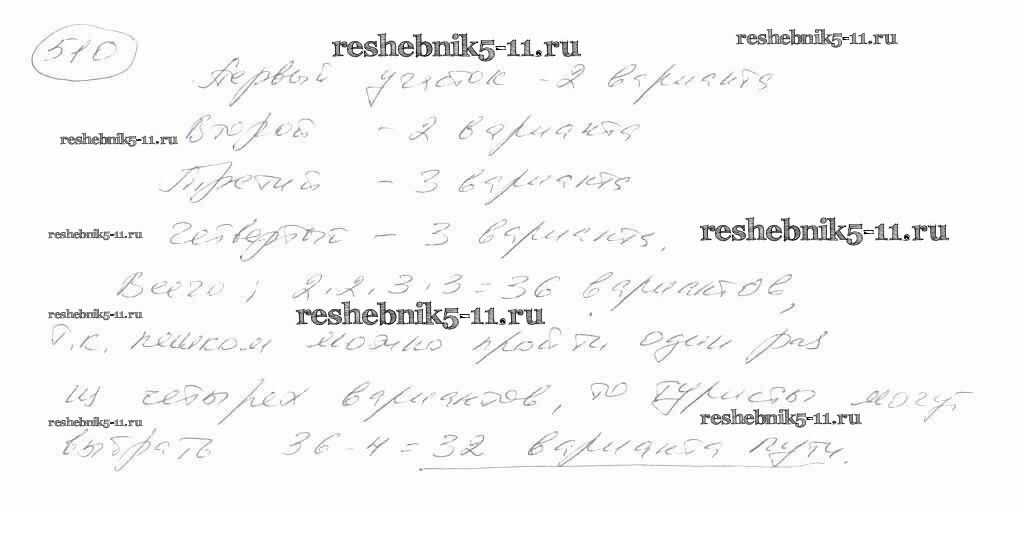 510
reshebnik5-11.ru
reshebnik5-11.ru
Первый участок - 2 варианта
reshebnik5-11.ru
Второй - 2 варианта
Третий - 3 варианта
reshebnik5-11.ru
Четвертый - 3 варианта.
reshebnik5-11.ru
Всего; 2.2.3.3=36 вариантов,
reshebnik5-11.ru
reshebnik5-11.ru
Т.к. пешком можно пройти один раз
из четырех вариантов, то туристы могут
reshebnik5-11.ru
reshebnik5-11.ru
выбрать 36-4=32 варианта пути.